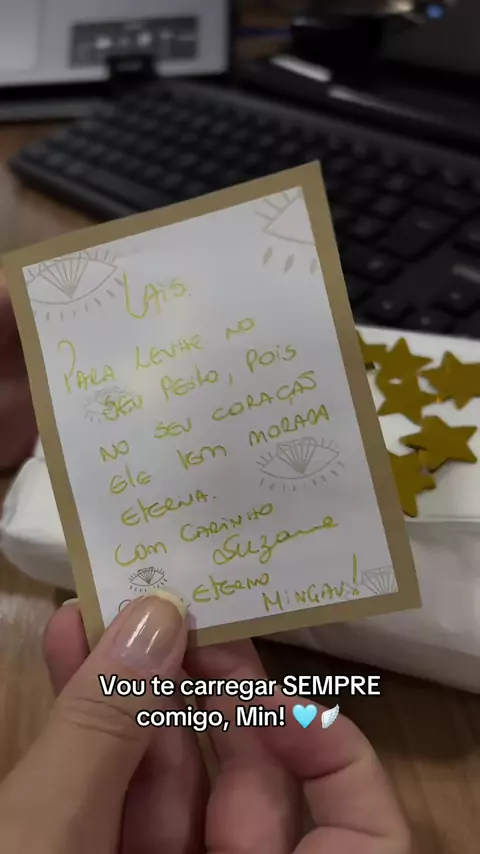 Lais.
PARA LEVAR NO
SEU PEITO, POIS
NO SEU CORAÇÃO
ELE TEM MORADA
ETERNA.
COM CARINHO
Suzane
ETERNO
MINGAU!
Vou te carregar SEMPRE
comigo, Min! 🩵🪽